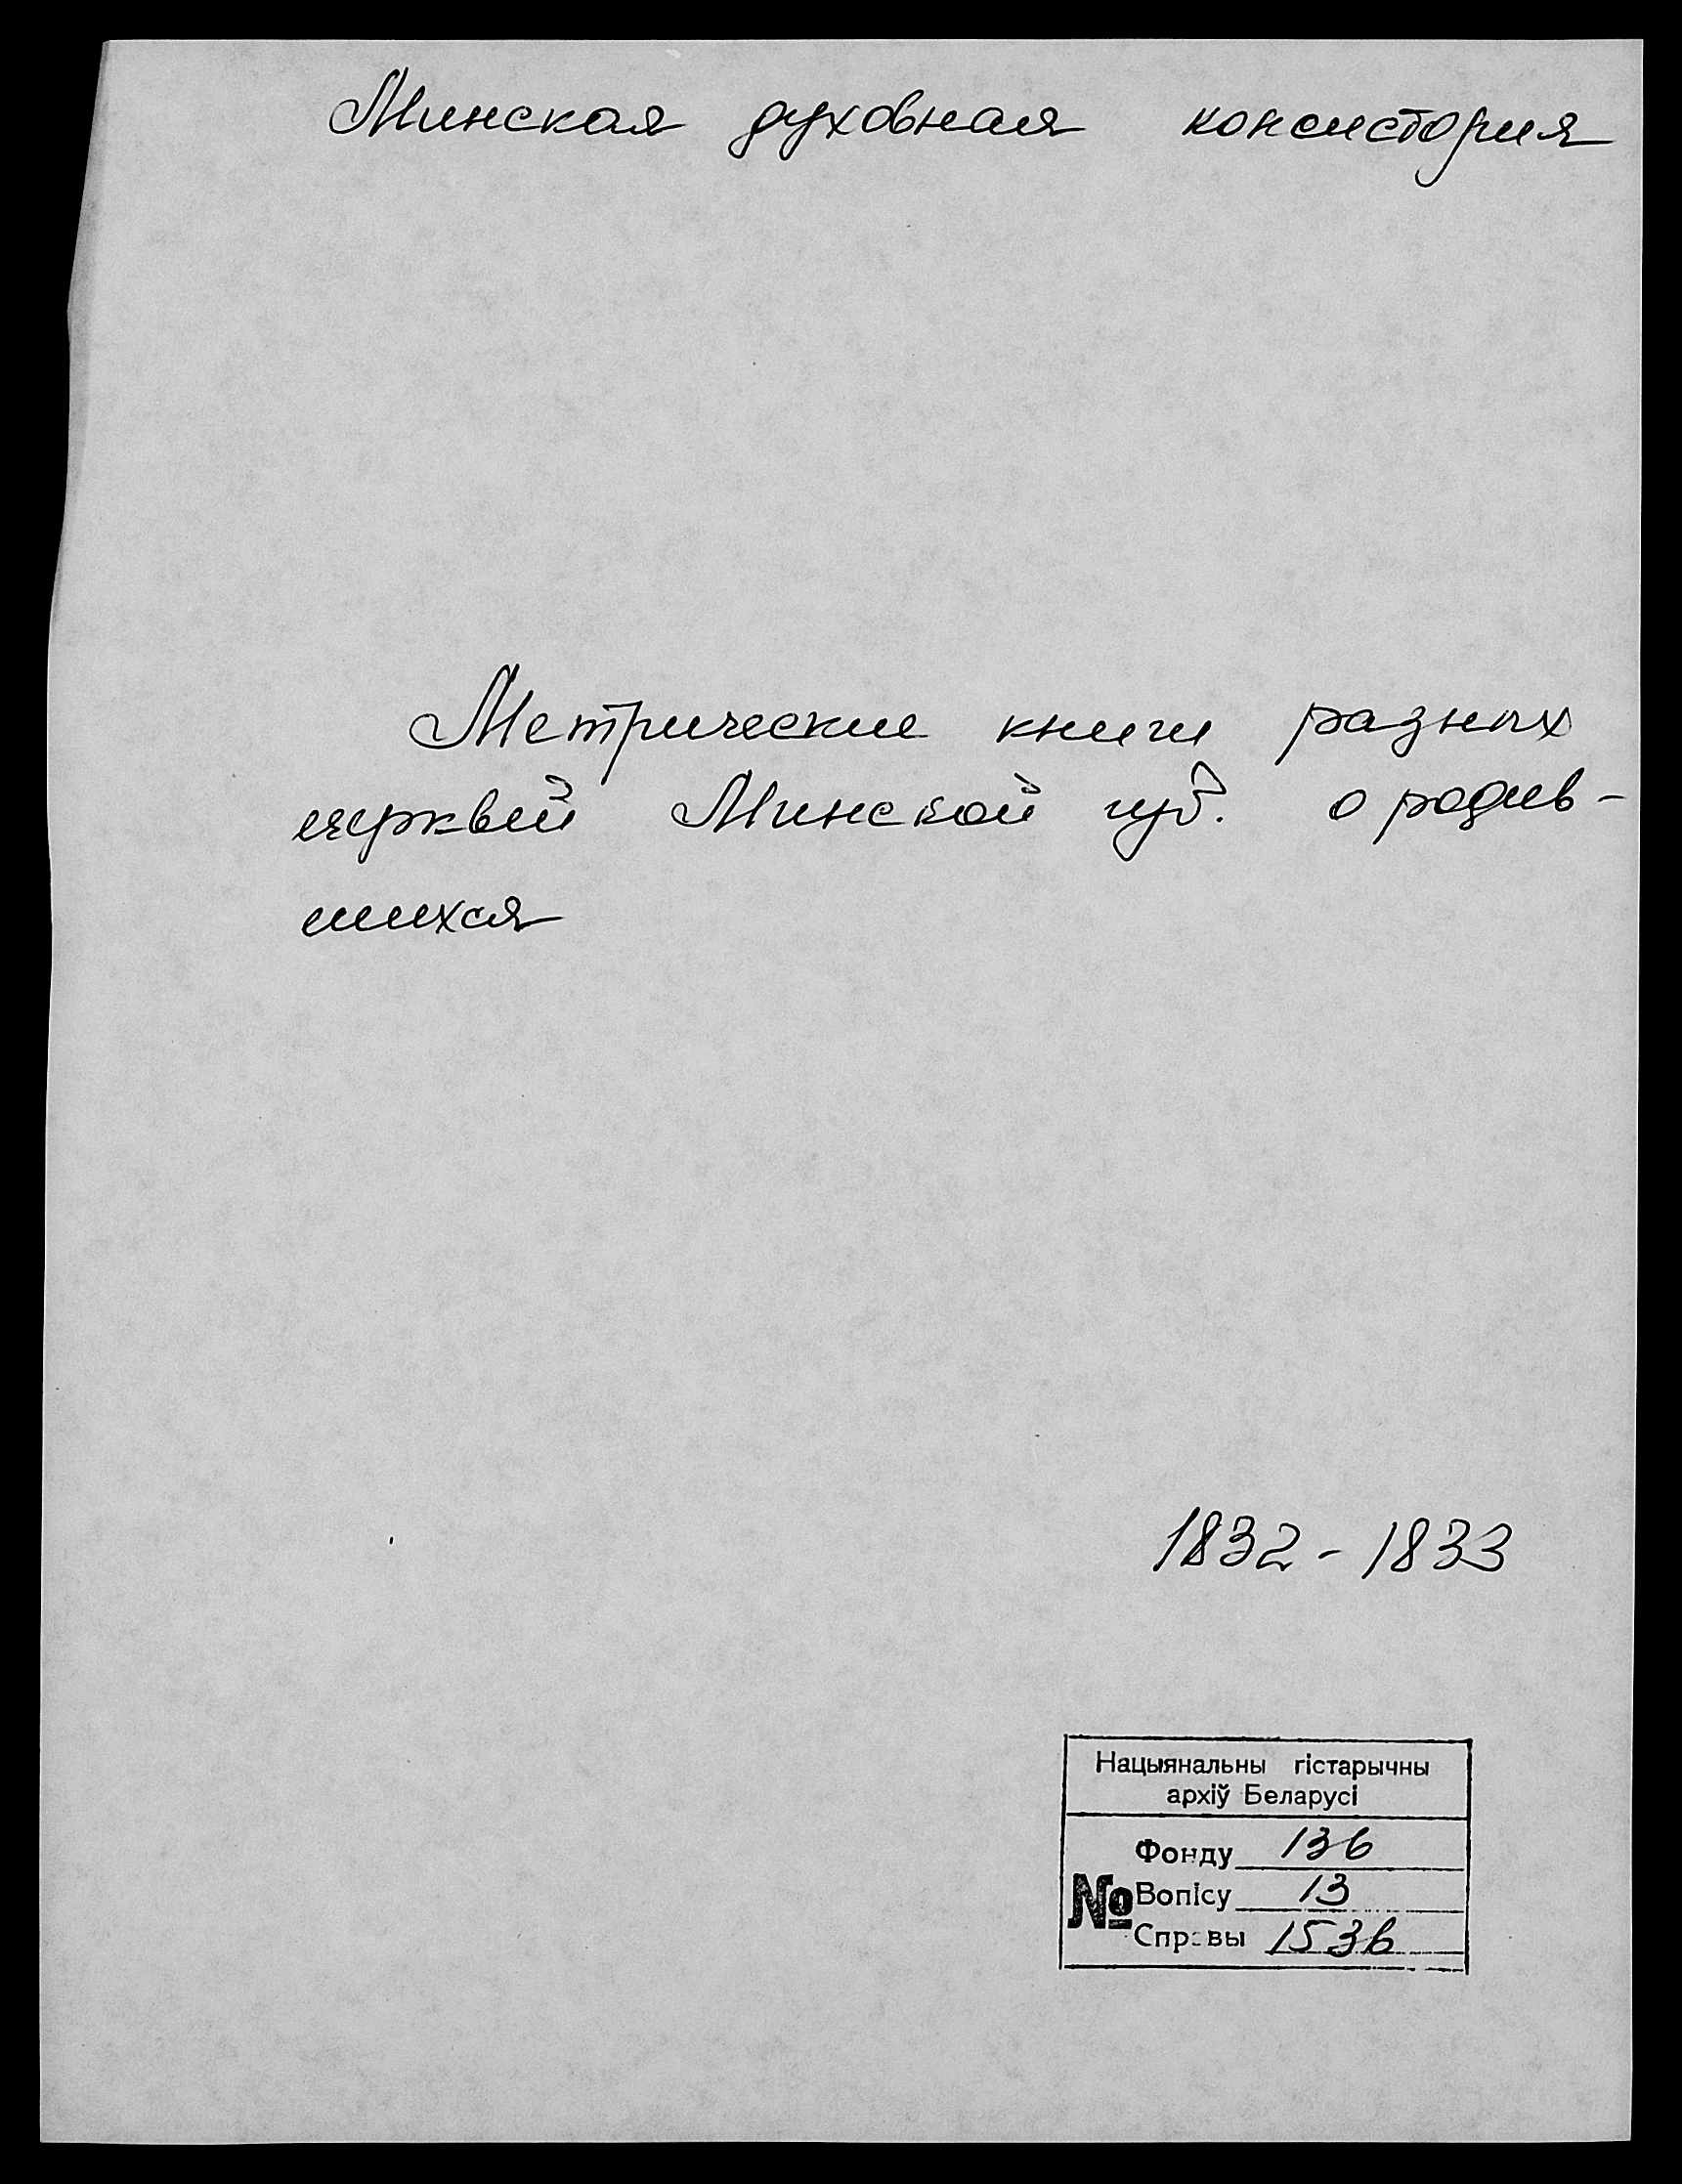 Минская духовная консистория
Метрические книги разных
церквей Минской губ. о родив-
шихся
1832 - 1833
Нацыянальны гістарычны
архіў Беларусі
Фонду 136
№ Вопісу 13
Справы 1536